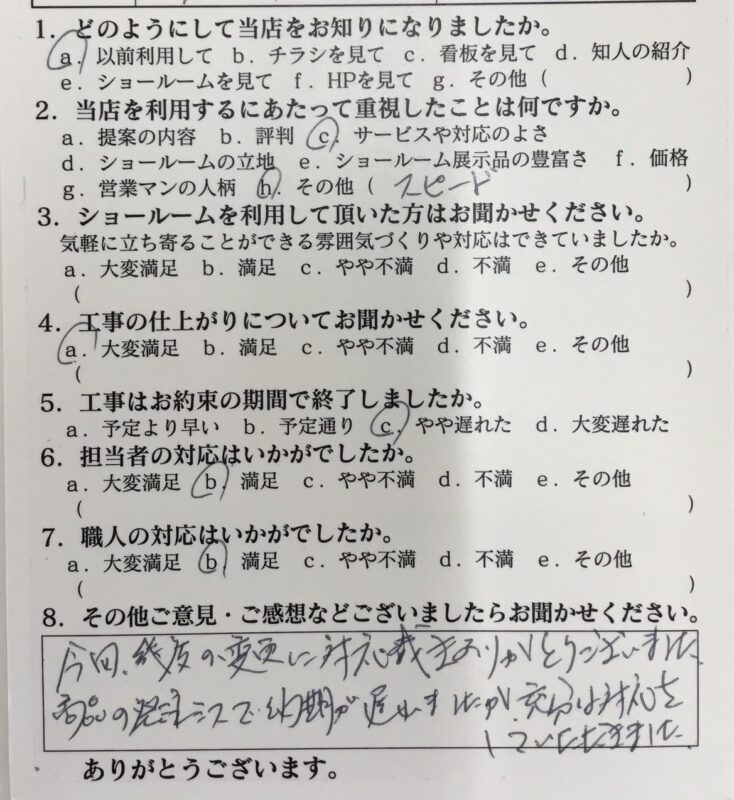 1. どのようにして当店をお知りになりましたか。
a. 以前利用して b. チラシを見て c. 看板を見て d. 知人の紹介
e. ショールームを見て f. HPを見て g. その他 ( )
2. 当店を利用するにあたって重視したことは何ですか。
a. 提案の内容 b. 評判 c. サービスや対応のよさ
d. ショールームの立地 e. ショールーム展示品の豊富さ f. 価格
g. 営業マンの人柄 h. その他 ( スピード )
3. ショールームを利用して頂いた方はお聞かせください。
気軽に立ち寄ることができる雰囲気づくりや対応はできていましたか。
a. 大変満足 b. 満足 c. やや不満 d. 不満 e. その他
( )
4. 工事の仕上がりについてお聞かせください。
a. 大変満足 b. 満足 c. やや不満 d. 不満 e. その他
( )
5. 工事はお約束の期間で終了しましたか。
a. 予定より早い b. 予定通り c. やや遅れた d. 大変遅れた
6. 担当者の対応はいかがでしたか。
a. 大変満足 b. 満足 c. やや不満 d. 不満 e. その他
( )
7. 職人の対応はいかがでしたか。
a. 大変満足 b. 満足 c. やや不満 d. 不満 e. その他
( )
8. その他ご意見・ご感想などございましたらお聞かせください。
今回、幾度の変更に対応戴きありがとうございました。
商品の発注ミスで納期が遅れましたが、充分な対応を
していただきました
ありがとうございます。